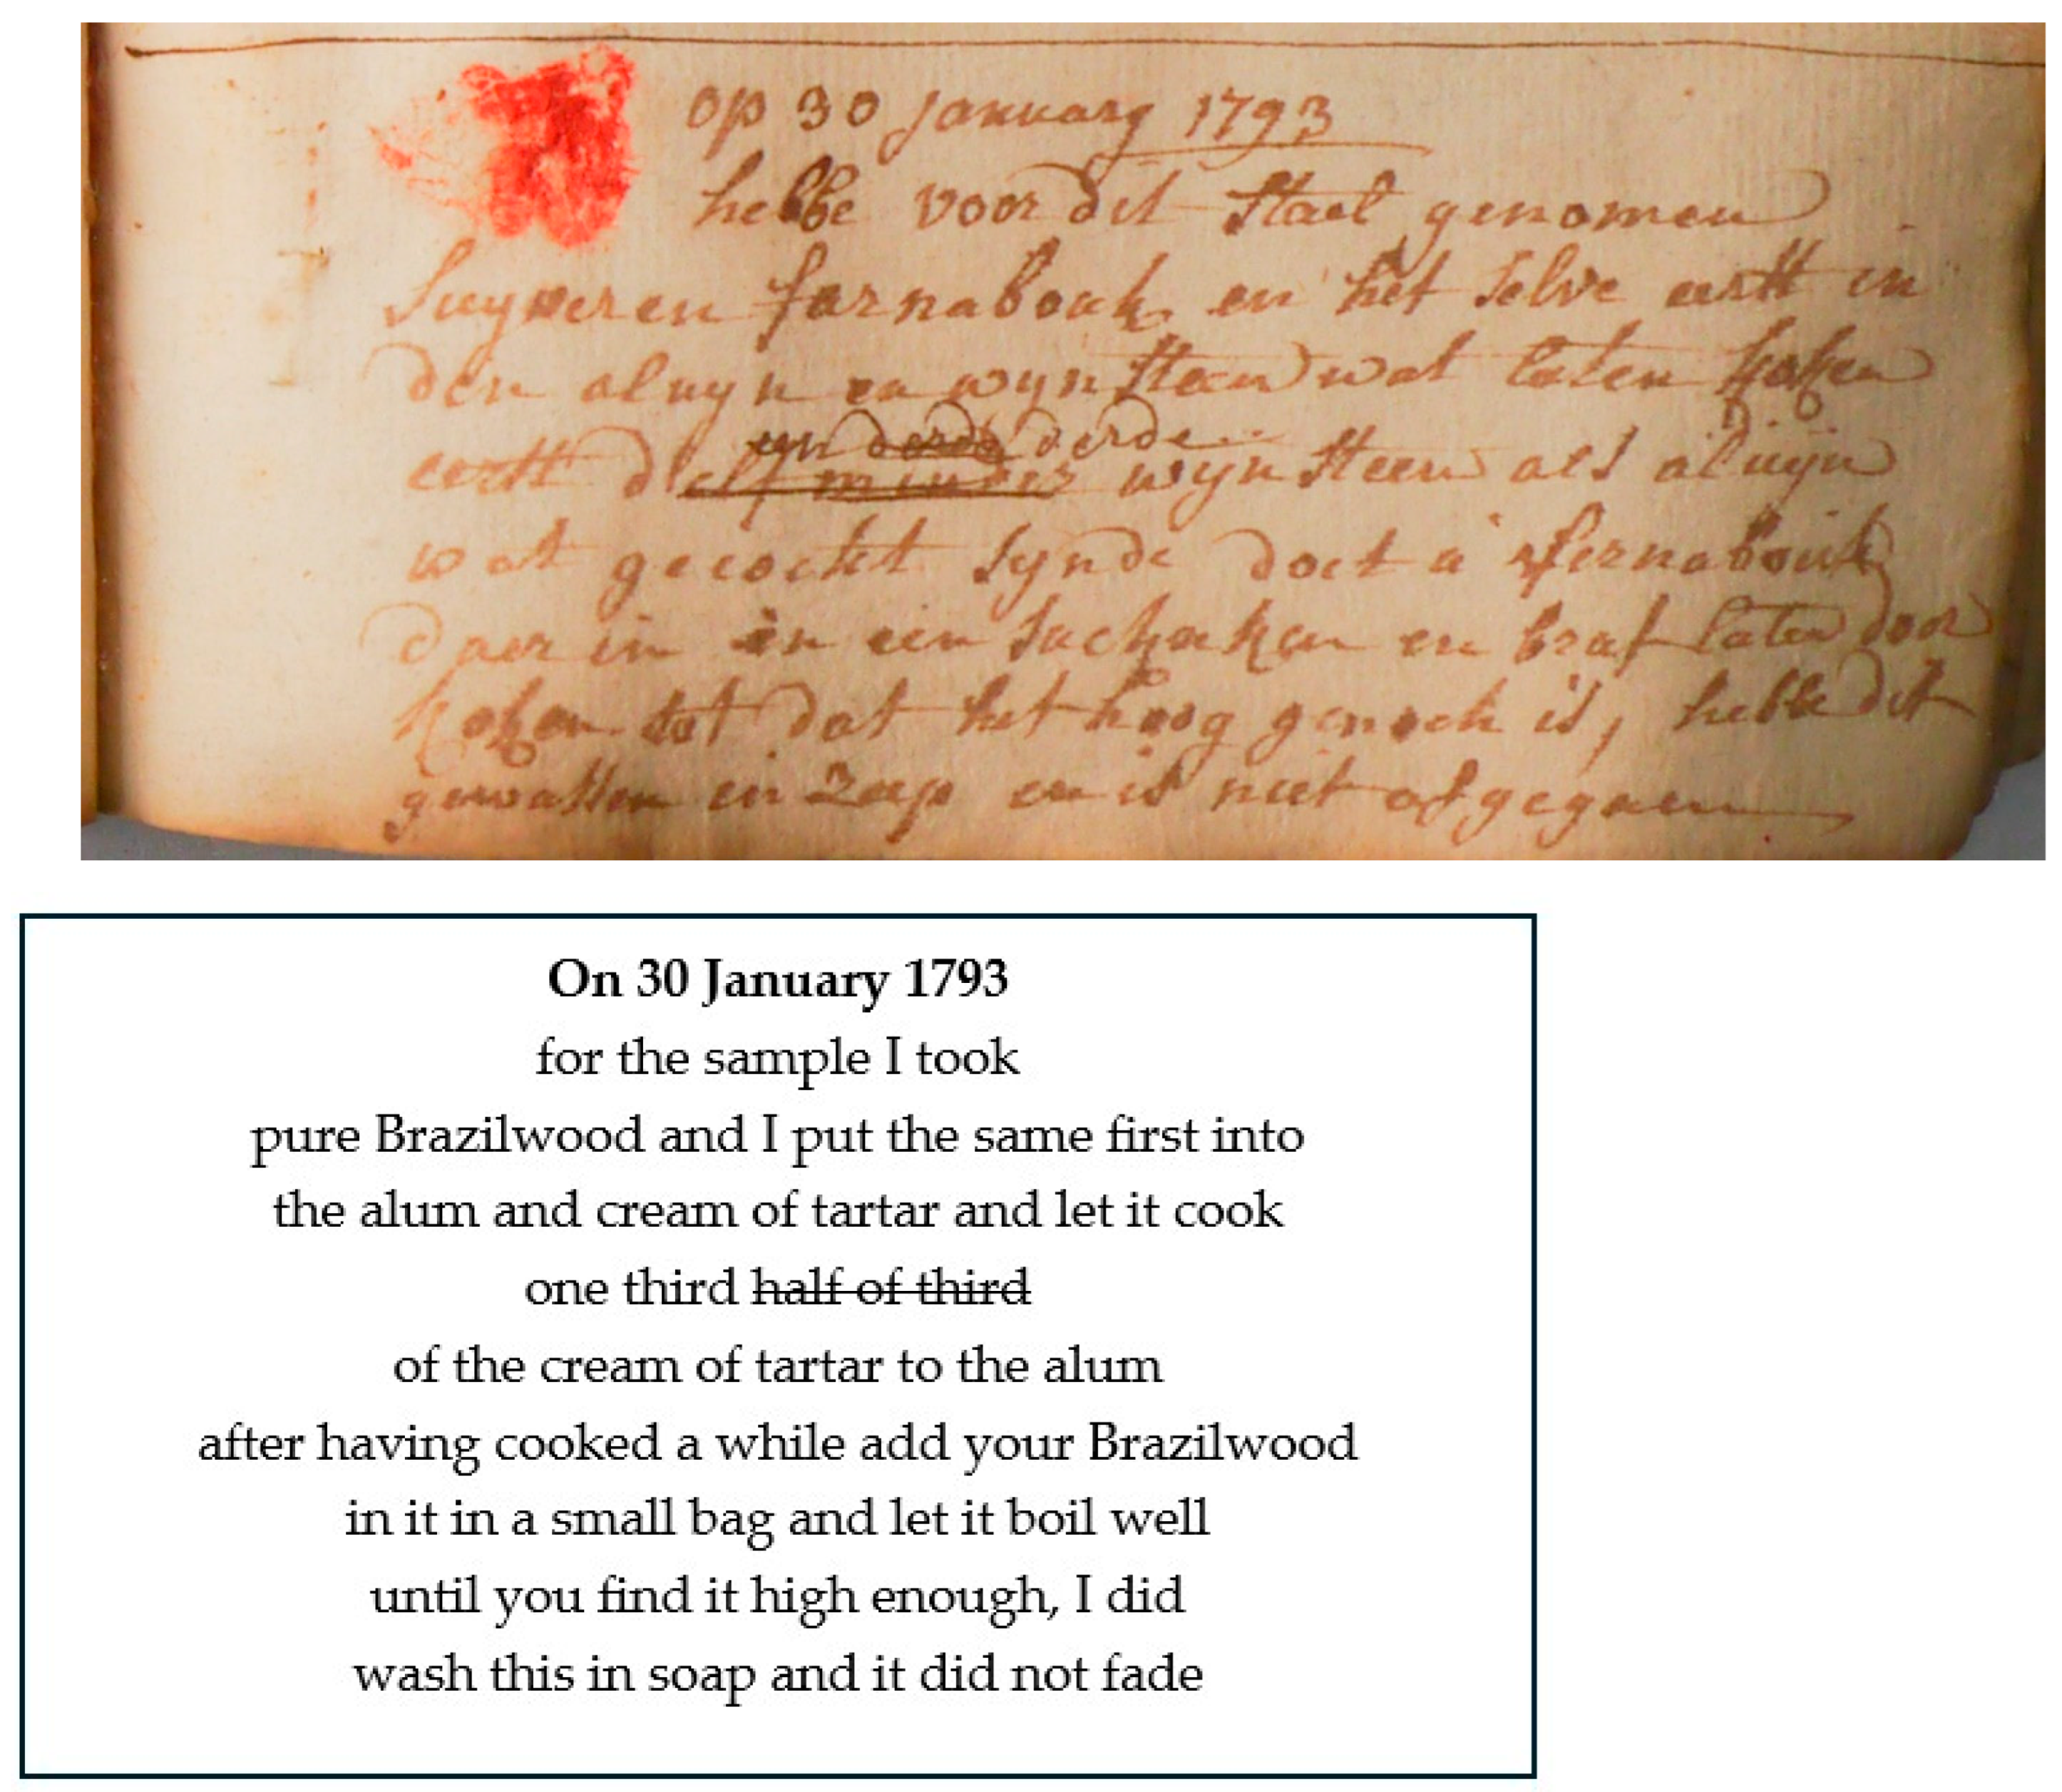 op 30 january 1793
hebbe voor dit Stael genomen
Suyveren farnabouk en het selve eerst in
den aluyn en wynsteen wat laten koken
een derde derde
eerst d elf minder wynsteen als aluyn
wat gecockt synde doet u fernabouk
daer in in een sackxken en braf laten door
koken tot dat het hoog genoch is, hebbe dit
gewassen in Zeep en is niet afgegaen
On 30 January 1793
for the sample I took
pure Brazilwood and I put the same first into
the alum and cream of tartar and let it cook
one third half of third
of the cream of tartar to the alum
after having cooked a while add your Brazilwood
in it in a small bag and let it boil well
until you find it high enough, I did
wash this in soap and it did not fade